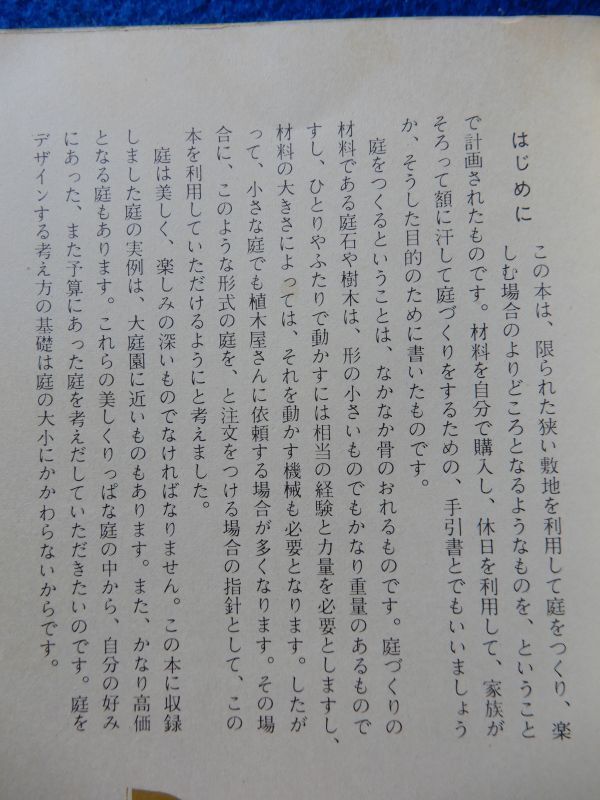 はじめに
この本は、限られた狭い敷地を利用して庭をつくり、楽
しむ場合のよりどころとなるようなものを、ということ
で計画されたものです。材料を自分で購入し、休日を利用して、家族が
そろって額に汗して庭づくりをするための、手引書とでもいいましょう
か、そうした目的のために書いたものです。
庭をつくるということは、なかなか骨のおれるものです。庭づくりの
材料である庭石や樹木は、形の小さいものでもかなり重量のあるもので
すし、ひとりやふたりで動かすには相当の経験と力量を必要としますし、
材料の大きさによっては、それを動かす機械も必要となります。したが
って、小さな庭でも植木屋さんに依頼する場合が多くなります。その場
合に、このような形式の庭を、と注文をつける場合の指針として、この
本を利用していただけるようにと考えました。
庭は美しく、楽しみの深いものでなければなりません。この本に収録
しました庭の実例は、大庭園に近いものもあります。また、かなり高価
となる庭もあります。これらの美しくりっぱな庭の中から、自分の好み
にあった、また予算にあった庭を考えだしていただきたいのです。庭を
デザインする考え方の基礎は庭の大小にかかわらないからです。